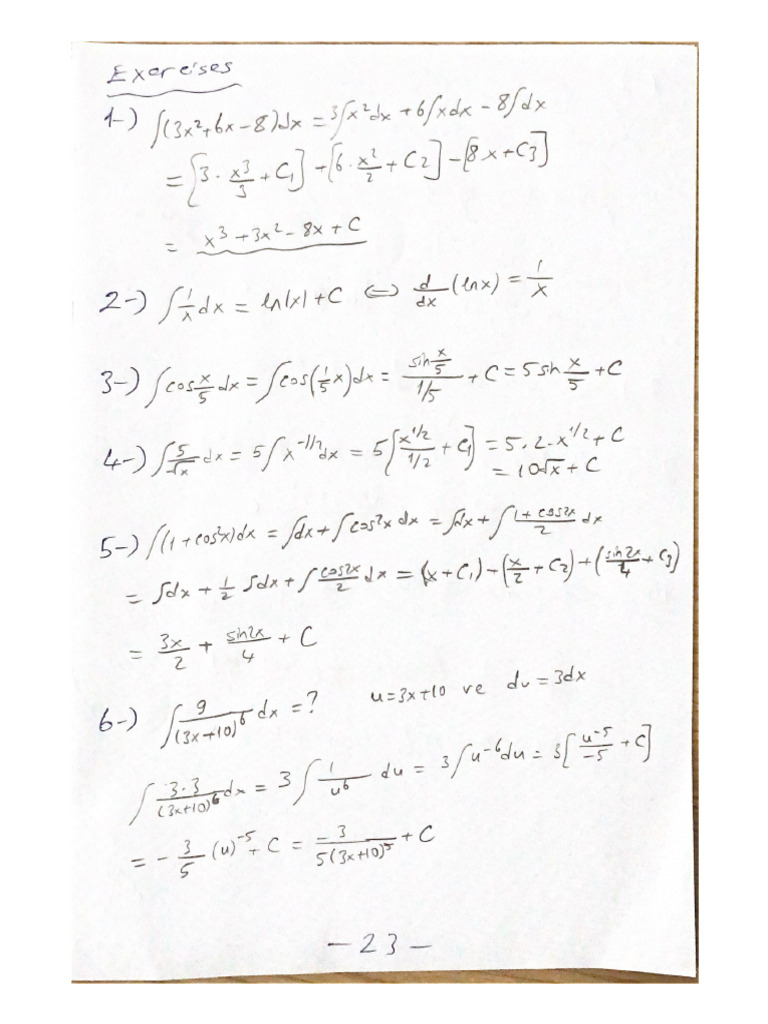 Exercises
1-) ∫(3x²+6x-8)dx = 3∫x²dx + 6∫xdx - 8∫dx
= [3·x³/3 + C₁] + [6·x²/2 + C₂] - [8x+C₃]
= x³+3x²-8x+C
2-) ∫1/x dx = ln|x|+C ⇔ d/dx (lnx) = 1/x
3-) ∫cos x/5 dx = ∫cos(1/5 x)dx = (sin x/5)/(1/5) + C = 5 sin x/5 + C
4-) ∫5/√x dx = 5∫x^(-1/2)dx = 5[x^(1/2)/(1/2) + C₁] = 5.2.x^(1/2)+C
= 10√x + C
5-) ∫(1+cos²x)dx = ∫dx + ∫cos²x dx = ∫dx + ∫(1+cos2x)/2 dx
= ∫dx + 1/2 ∫dx + ∫cos2x/2 dx = (x+C₁) + (x/2 + C₂) + (sin2x/4 + C₃)
= 3x/2 + sin2x/4 + C
6-) ∫9/(3x+10)⁶ dx = ? u=3x+10 ve du=3dx
∫3.3/(3x+10)⁶ dx = 3∫1/u⁶ du = 3∫u⁻⁶du = 3[u⁻⁵/-5 + C]
= -3/5 (u)⁻⁵ + C = -3/5(3x+10)⁵ + C
-23-